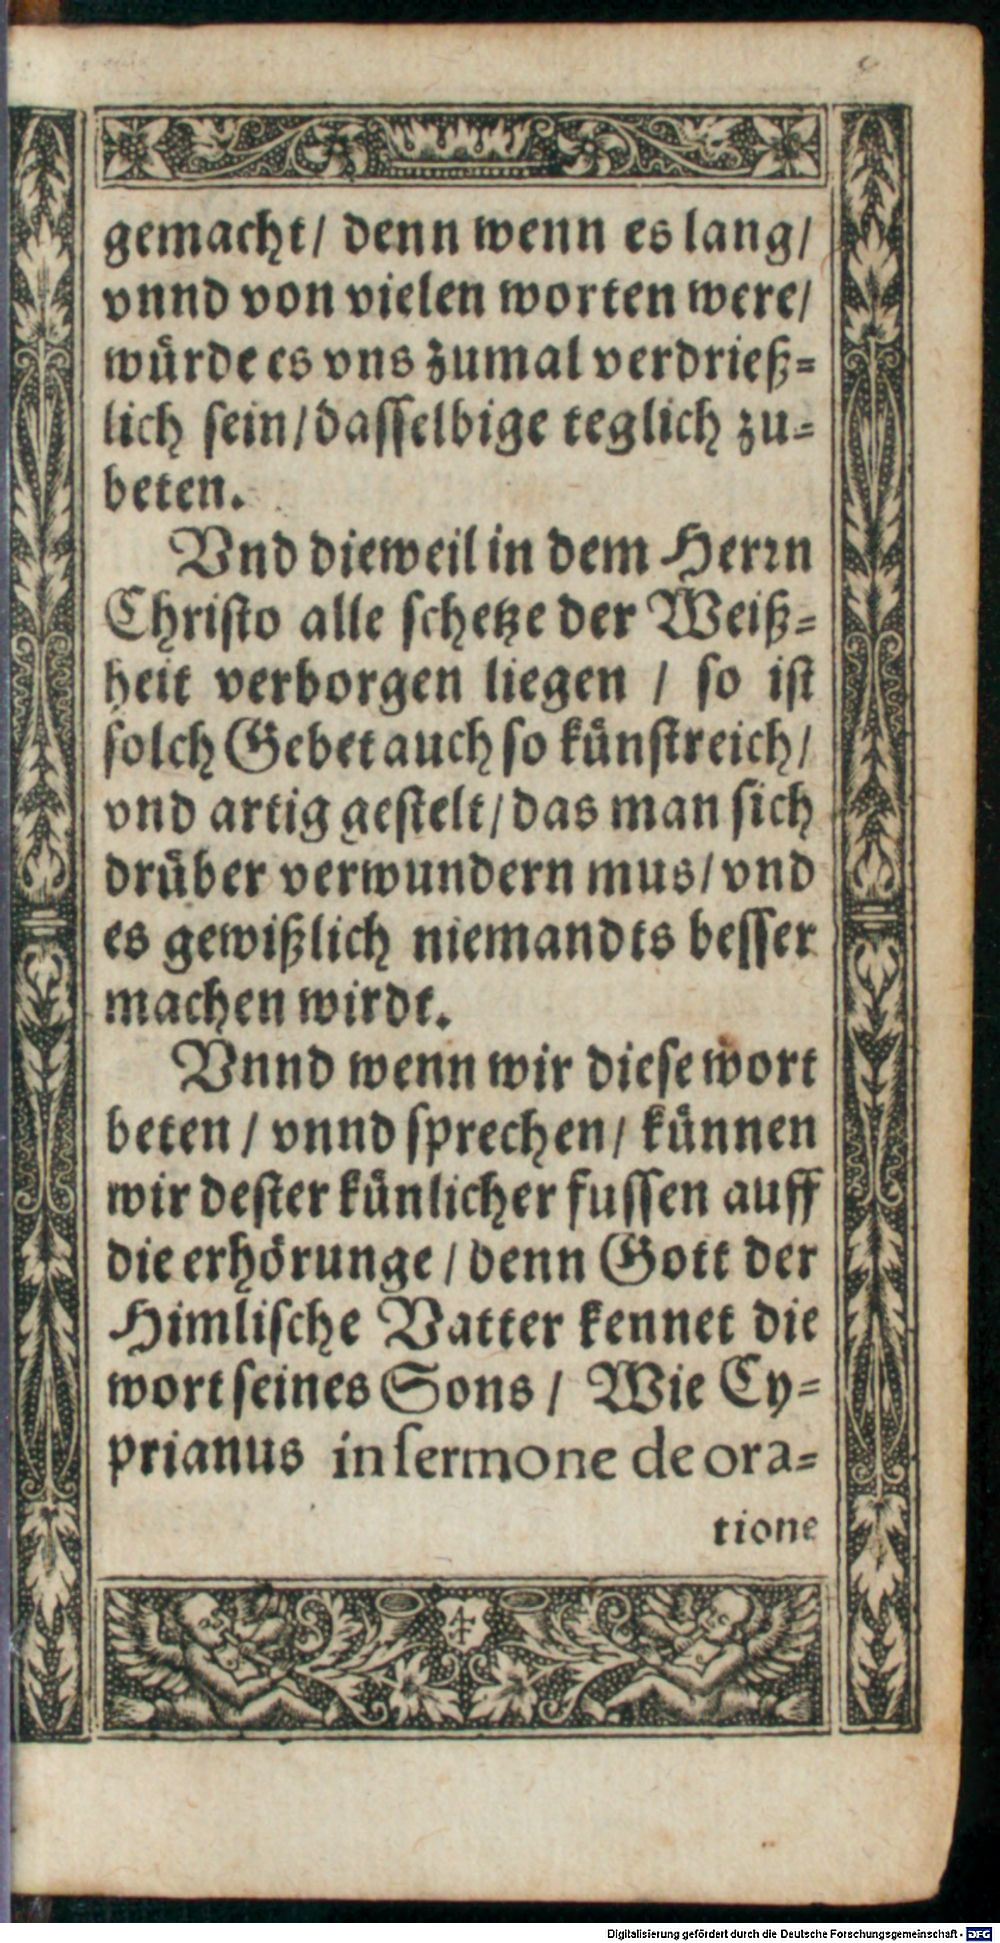 gemacht/ denn wenn es lang/
vnnd von vielen worten were/
würde es vns zumal verdrieß=
lich sein/ dasselbige teglich zu=
beten.
Vnd dieweil in dem Herrn
Christo alle schetze der Weiß=
heit verborgen liegen / so ist
solch Gebet auch so künstreich/
vnd artig gestelt/ das man sich
drüber verwundern mus/ vnd
es gewißlich niemandts besser
machen wirdt.
Vnnd wenn wir diese wort
beten / vnnd sprechen/ künnen
wir dester künlicher fussen auff
die erhörunge / denn Gott der
Himlische Vatter kennet die
wort seines Sons / Wie Cy=
prianus in sermone de ora=
tione
Digitalisierung gefördert durch die Deutsche Forschungsgemeinschaft - DFG